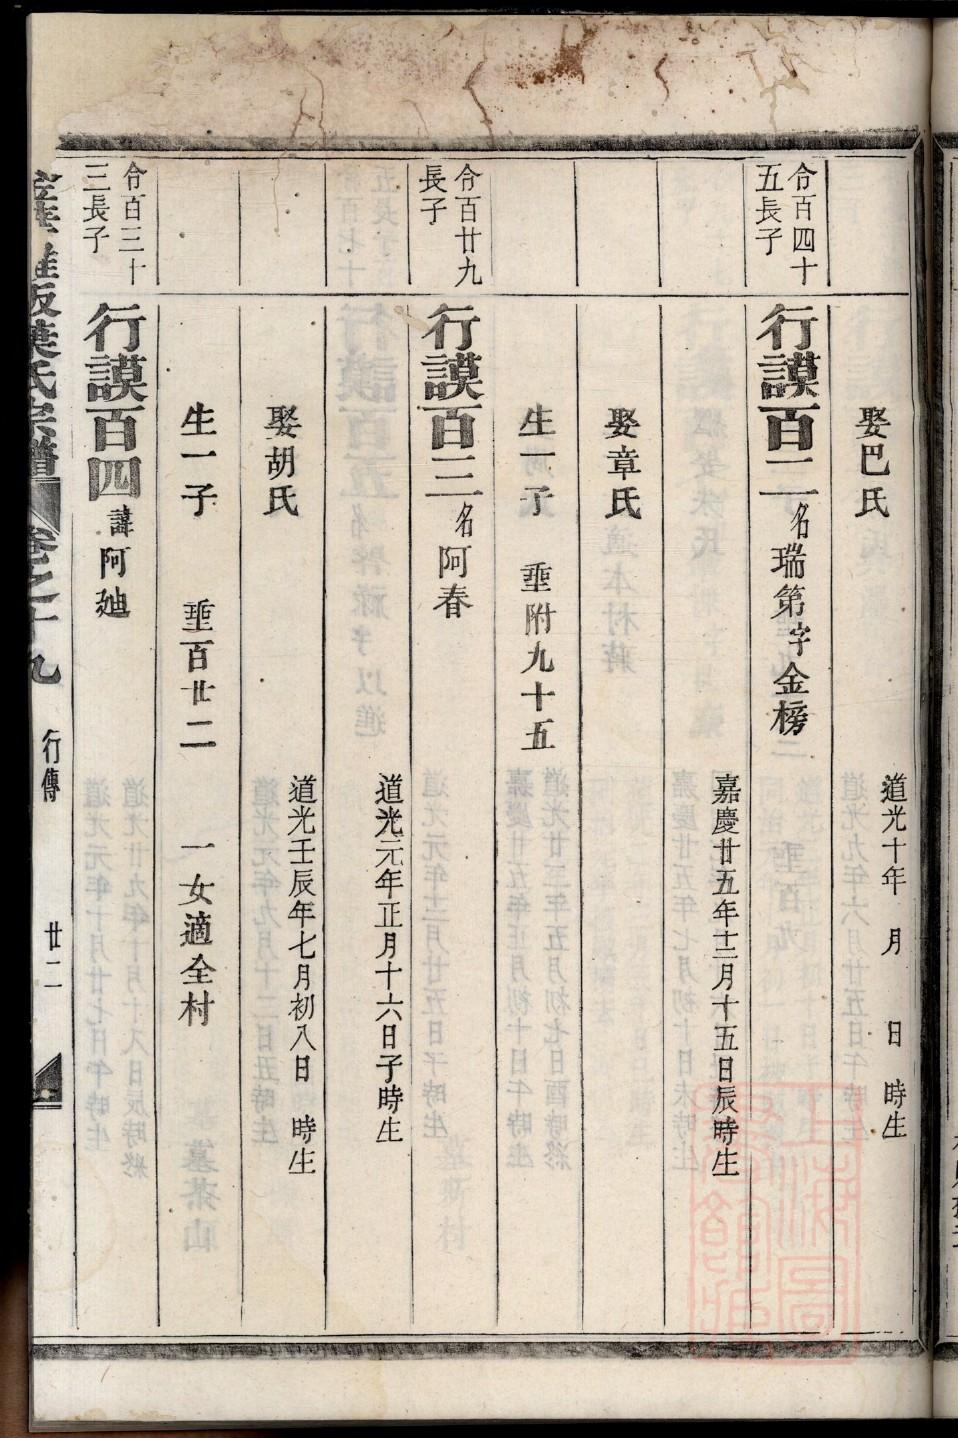 娶巴氏
道光十年 月 日 時生
令百四十
五長子
行謨百二名瑞第字金榜
嘉慶廿五年十二月十五日辰時生
娶章氏
生一子 垂附九十五
令百廿九
長子
行謨百三名阿春
道光元年正月十六日子時生
娶胡氏
道光壬辰年七月初八日 時生
生一子 垂百廿二 一女適全村
令百三十
三長子
行謨百四諱阿廸
葉氏宗譜 卷之十九 行傳 廿二